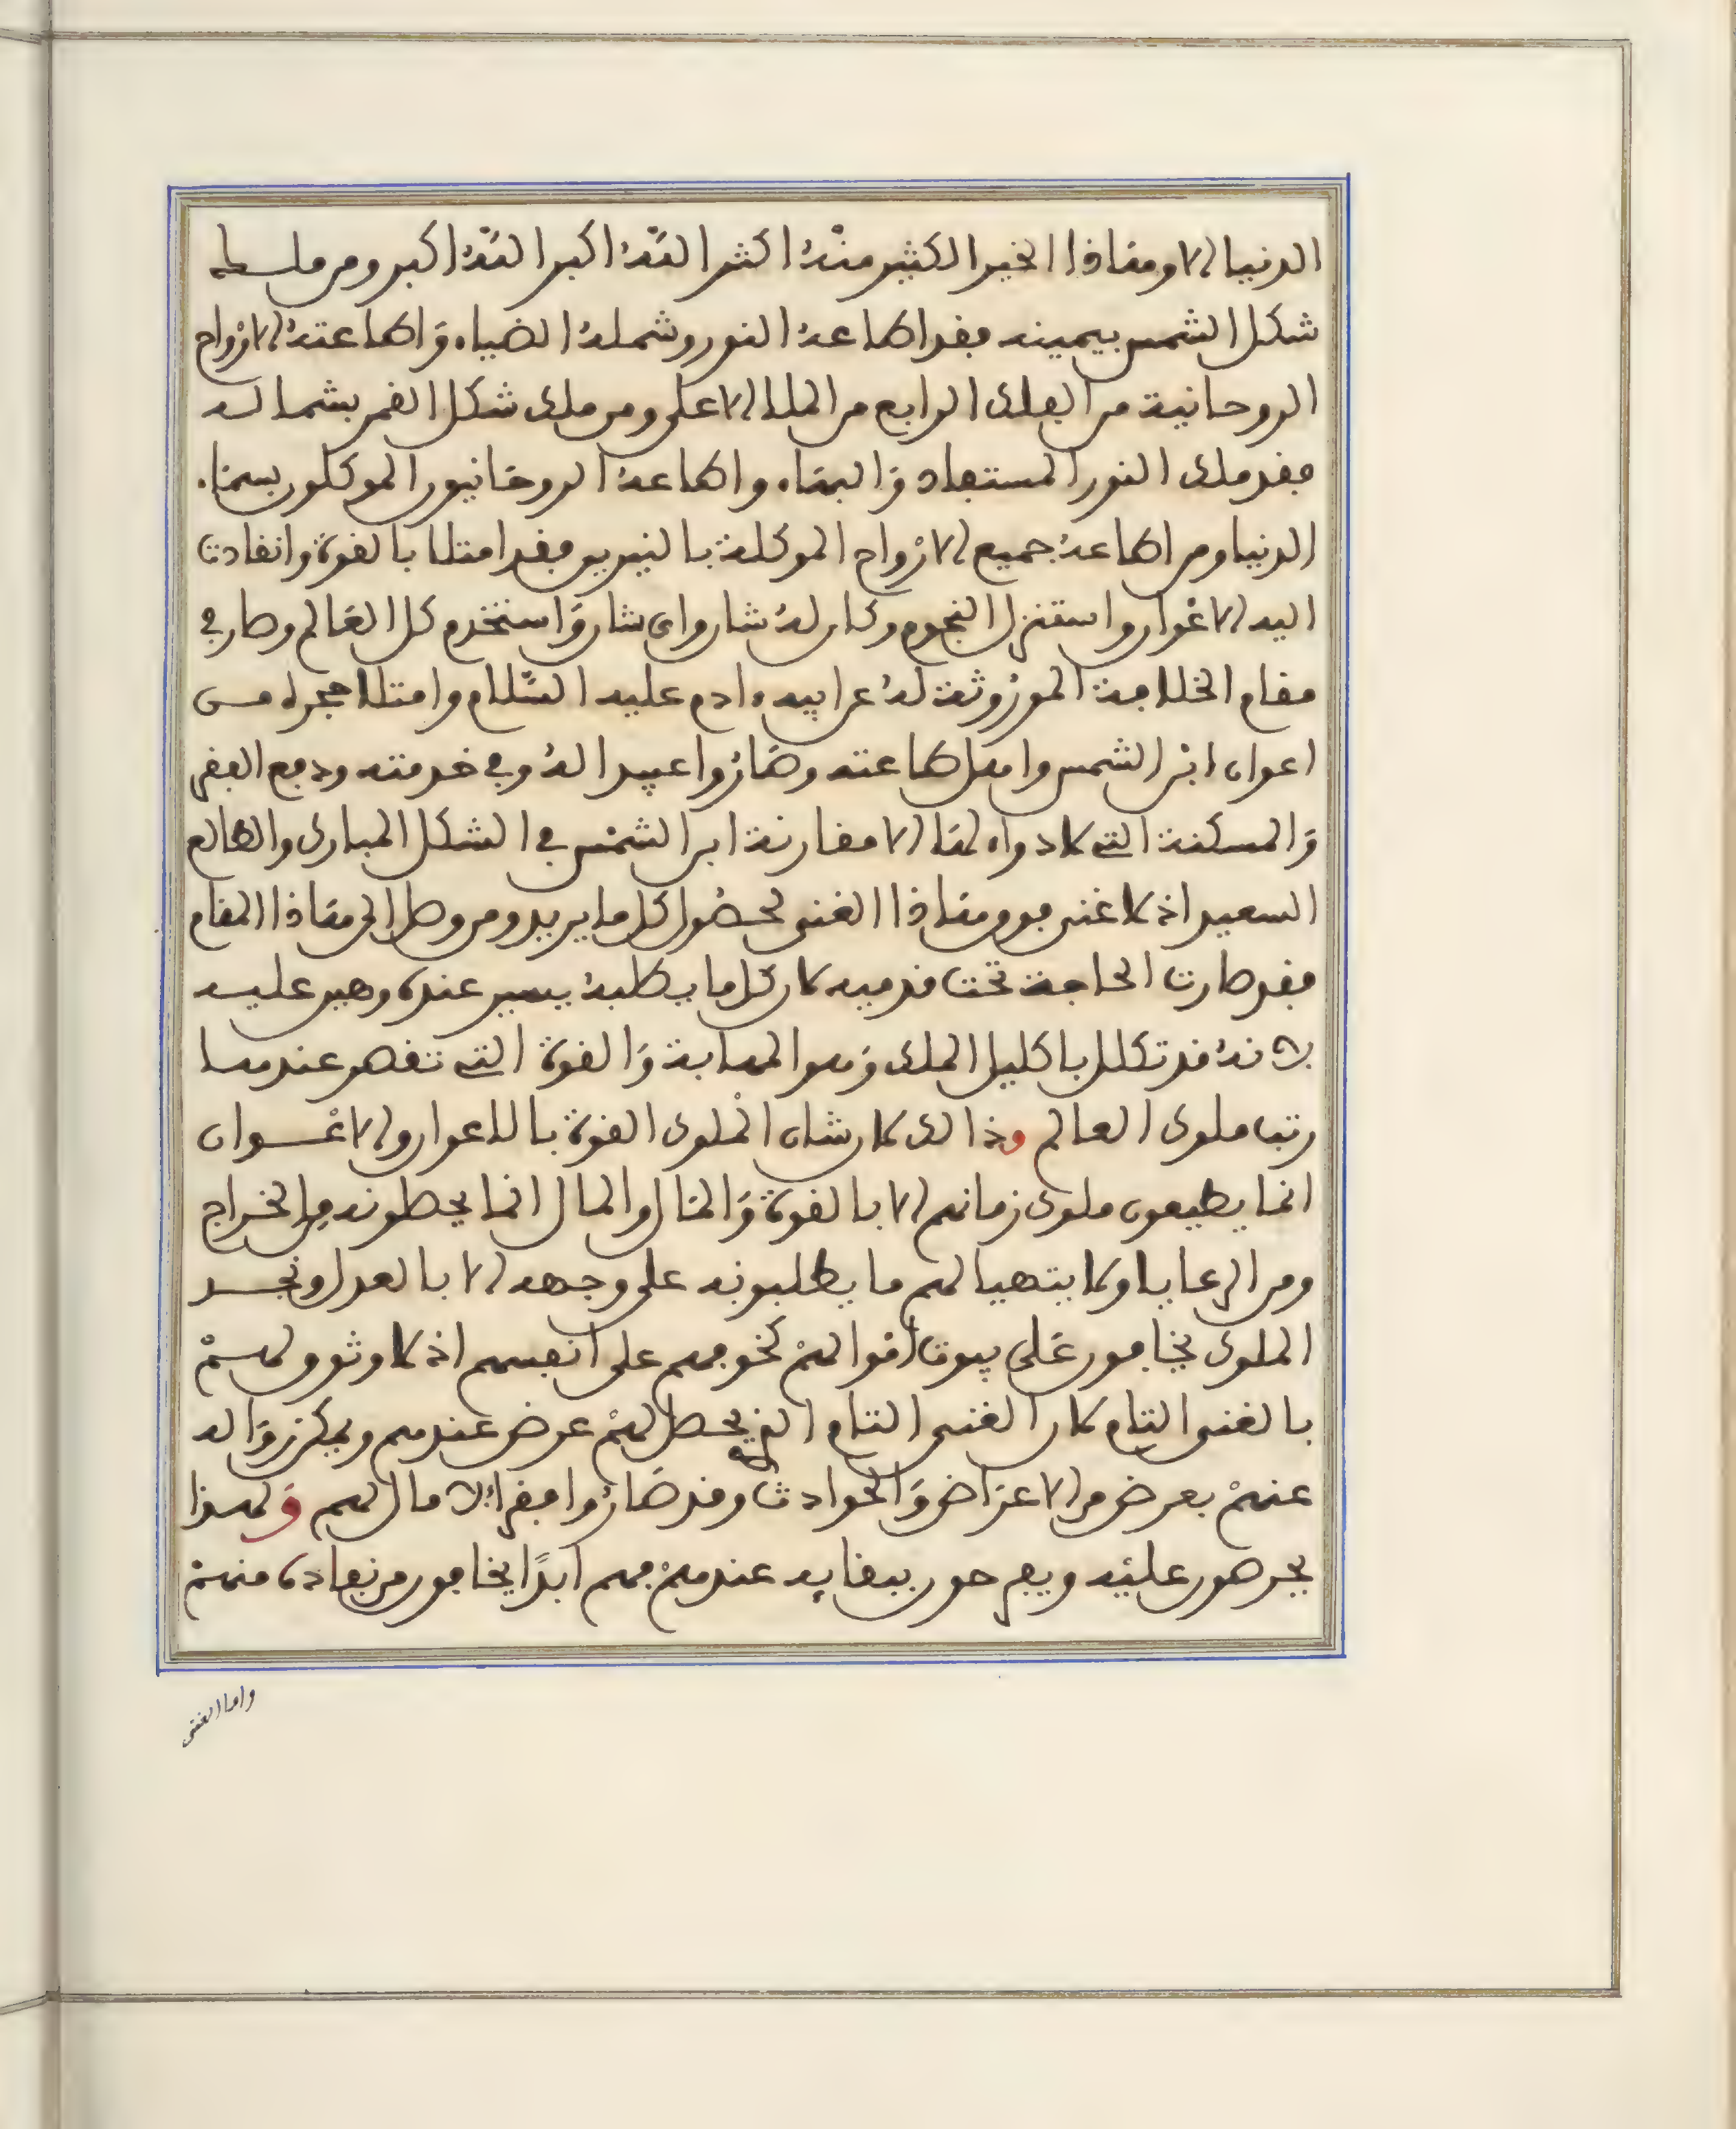 الدنيا الا وهاذا الخير الكثير منهُ اكثر اللّهُ اكبر اللّهُ اكبر ومن ملك
شكل الشمس بيمينه فقد اطاعهُ النور وشملهُ الضياء وَاطاعتهُ الاَرْواح
الروحانية من الفلك الرابع من الملا الاعلى ومن ملك شكل القمر بشماله
فقد ملك النور المستفاد وَالبهاء واطاعهُ الروحَانيون الموكلون بسماء
الدنيا ومن اطاعهُ جميع الاَرْواح الموكلة بالنيرين فقد امتلا بالقوة وانقادت
اليه الاعْوان واستنزل النجوم وكان لهُ شان واى شان وَاستخدم كل العَالم وصار في
مقام الخلافة الموْروثة لهُ عن ابيه ءادم عليه السّلام وامتلا حجره من
اعوان ابْن الشمس واهل طاعته وصَارُوا عبيدا لهُ وفي خدمته ودفع الفقر
وَالمسكنة التي لا دواء لهَا الا مقارنة ابن الشمْس في الشكل المبارك والطالع
السعيد اذ لا غنى فوق هَاذا الغنى لحصُول كل ما يريد ومن وصل الى هَاذا المقام
فقد صارت الحاجة تحت قدميه لان كل ما يطلبهُ يسير عنده وهين عليه
لانهُ قد تكلل باكليل الملك وَهو المهابة وَالقوة التي تقصر عندها
رتب ملوك العالم وذالك لان شان الْملوك القوة بالاعوان والاعْوان
انما يطيعون ملوك زمانهم الا بالقوة وَالمَال والمال انما يحصلونه من الخراج
ومن الرعايا ولا يتهيا لهم ما يطلبونه على وجهه الا بالعدل ونجد
الملوك يخافون عَلى بيوت امْوالهمْ كخوفهم على انفسهم اذ لا وثوق لهمْ
بالغنى التام لان الغنى التام الذي يحصل لهمْ عرض عندهم ويمكن زوَاله
عنهمْ بعرض من الاعرَاض وَالحوادث وقد صَارُوا فقراء لا مال لهم وَلهذا
يحرصون عليْه ويفرحون ببقايه عندهمْ فهم ابدًا يخافون من نفاده منهمْ
واما الغنى